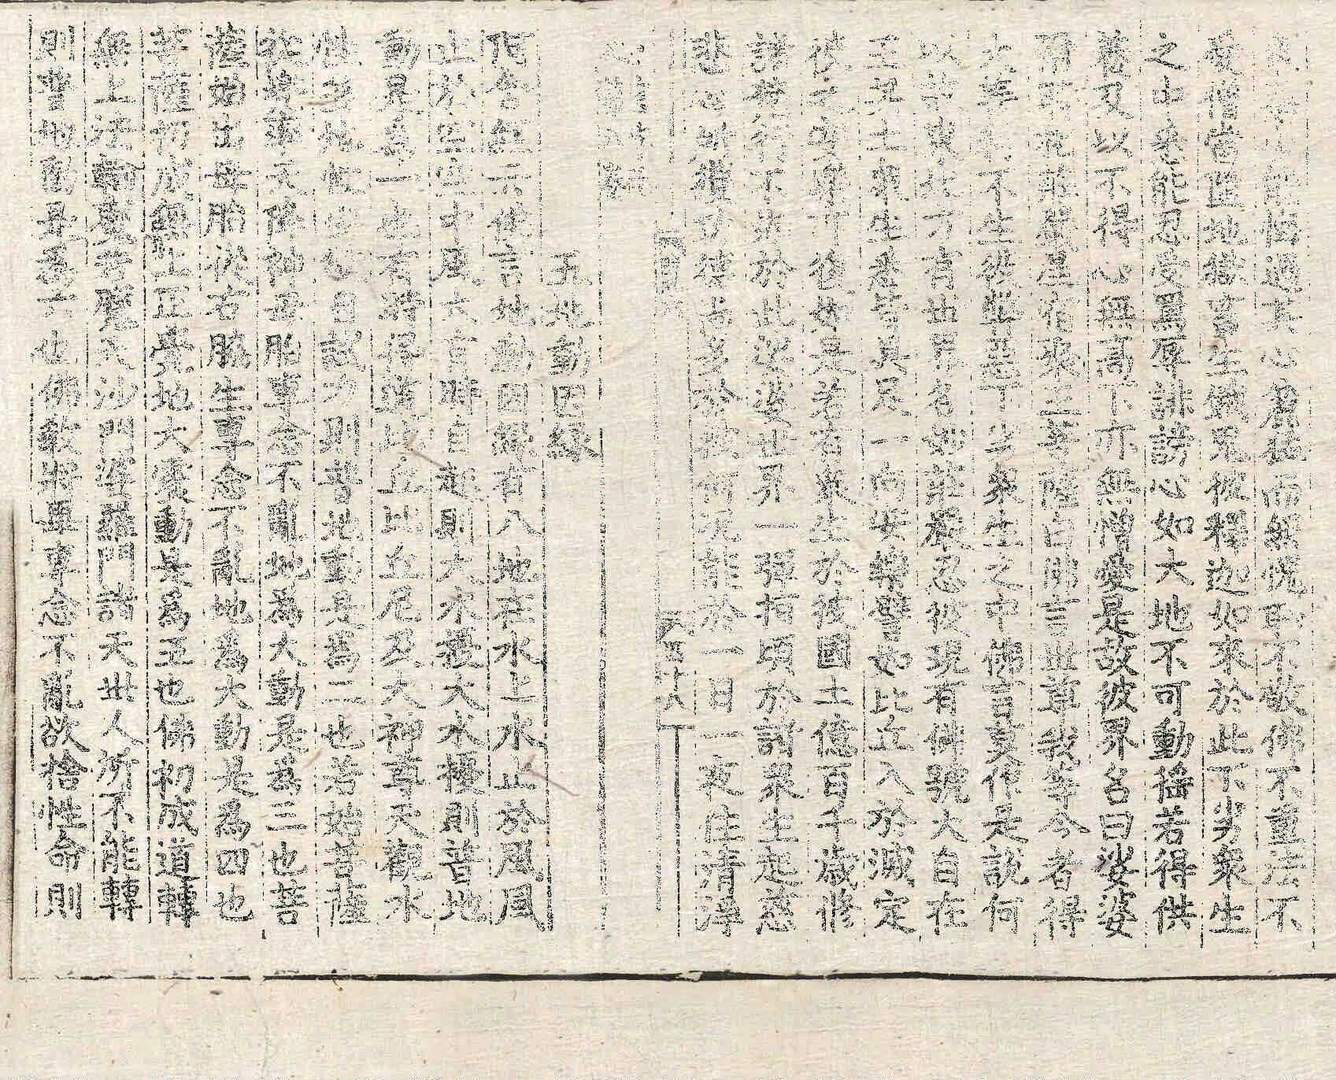 能悔過其心麁穬而無愧耻不敬佛不重法不
愛僧當區地獄畜生餓鬼彼釋迦如來於此下劣衆生
之出來能忍受罵辱誹謗心如大地不可動搖若得供
養及以不得心無高下亦無憎愛是故彼界名曰娑婆
尊陀白佛言世尊我等今者得
大不生彼惡下劣衆生之中佛言莫作是說何
以故東北方有世界名妙莊嚴忍彼現有佛號大自在
王其土衆生悉皆具足一向安樂譬如比丘入於滅定
彼之安樂亦復如是若有衆生於彼國土億百千歲修
諸梵行不如於此娑婆世界一彈指頃於諸衆生起慈
悲心所獲功德尚多於彼何況能於一日一夜住清淨
心
五地動因緣
阿含經云佛言地動因緣有八地在水上水止於風風
止於空空中風大有時自起則大水擾大水擾則普地
動是為一也有時得道比丘比丘尼及大神尊天觀水
性多地性少自試力則普地動是為二也若始菩薩
從兜率天降神母胎專念不亂地為大動是為三也菩
薩始出母胎從右脇生專念不亂地為大動是為四也
菩薩初成無上正覺地大震動是為五也佛初成道轉
無上法輪魔若魔天沙門婆羅門諸天世人所不能轉
則普地動是為六也佛教將畢專念不亂欲捨性命則